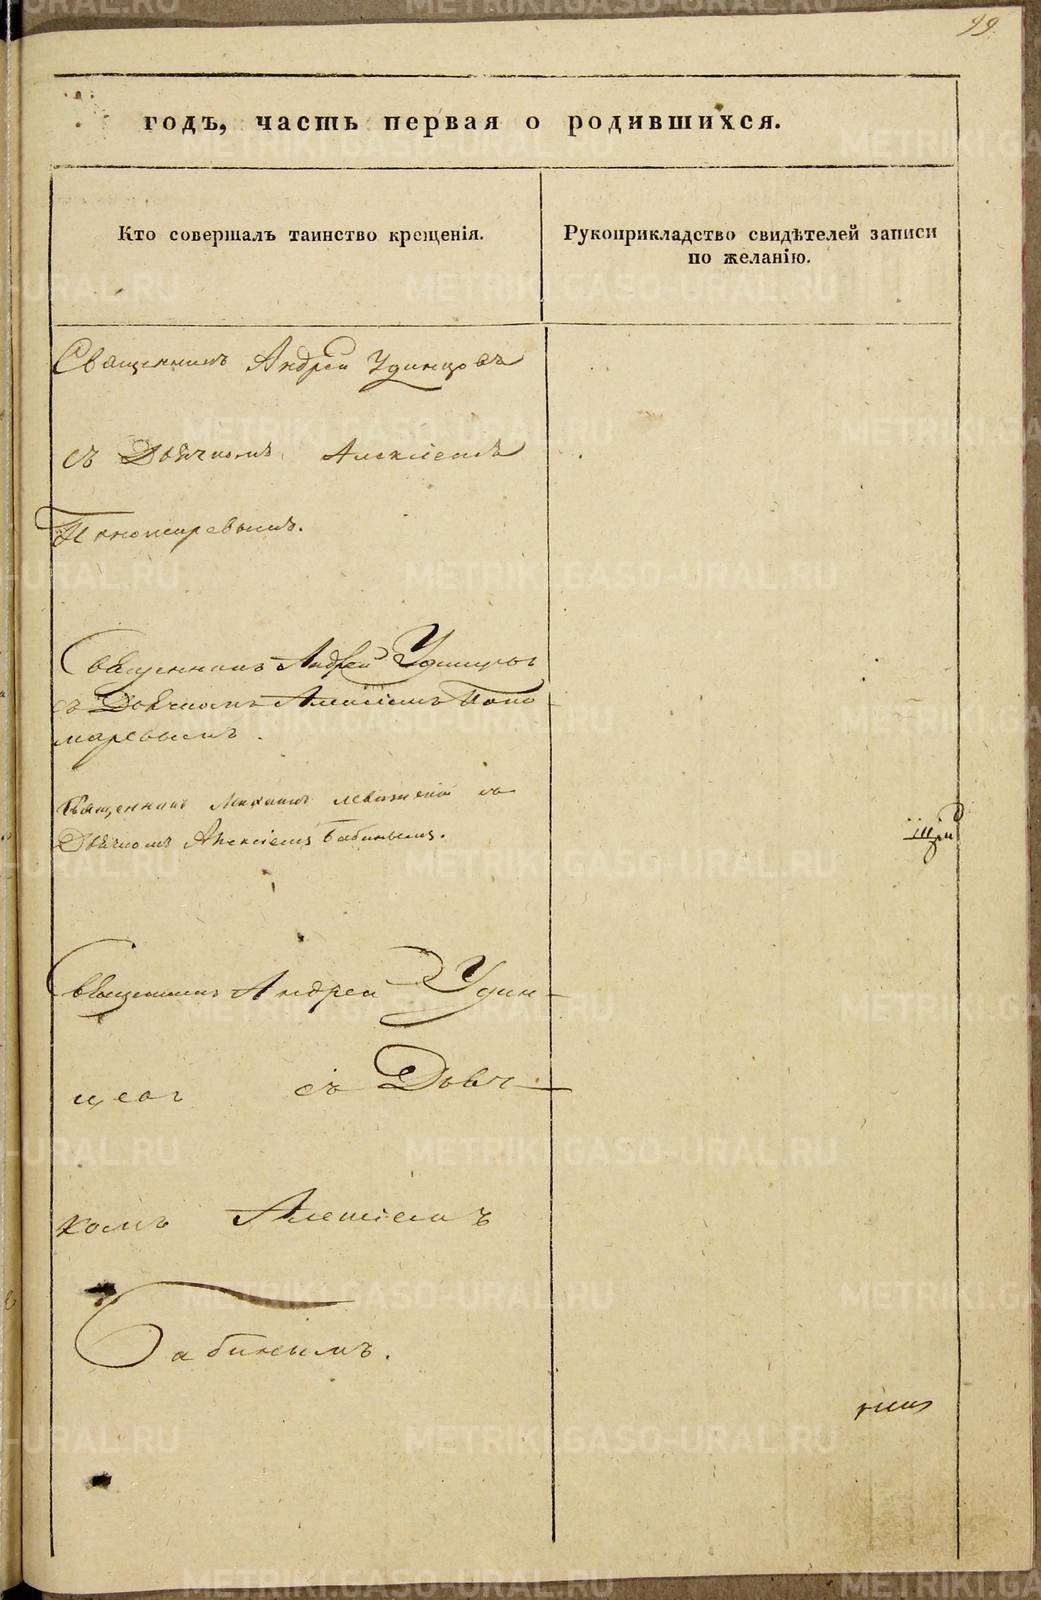 99.
годъ, часть первая о родившихся.
Кто совершалъ таинство крещенія.
Рукоприкладство свидѣтелей записи
по желанію.
Священникъ Андрей Удинцовъ
съ Дьячкомъ Алексіемъ
Пономаревымъ.
Священникъ Андрей Удинцовъ
съ Дьячкомъ Алексіемъ Поно
маревымъ.
Священникъ Михаилъ съ
Дьячкомъ Алексіемъ Бабинымъ.
Священникъ Андрей Удин
цовъ съ Дьяч
комъ Алексіемъ
Бабинымъ.
METRIKI.GASO-URAL.RU